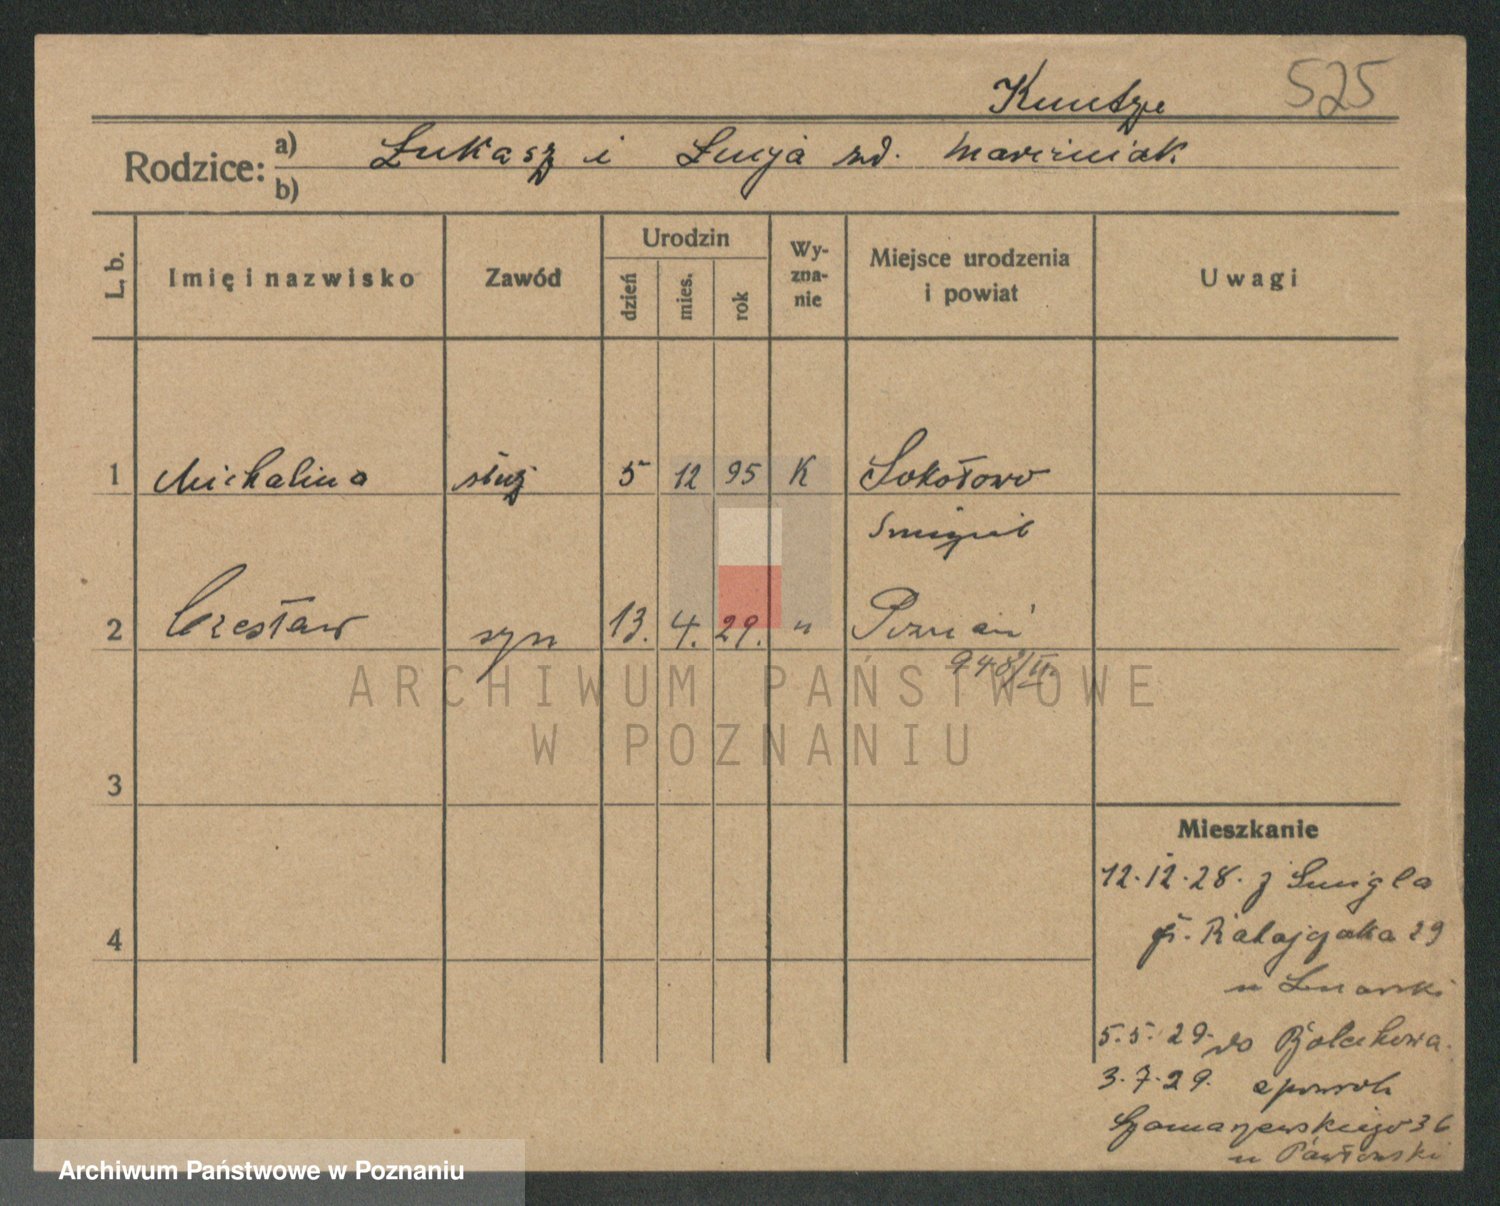 Kuntze 525
Rodzice: a) Łukasz i Łucja zd. Marciniak
b)
L. b. Imię i nazwisko Zawód Urodzin dzień mies. rok Wyznanie Miejsce urodzenia i powiat Uwagi
1 Michalina służ 5 12 95 K Sokołowo
Śmigiel
2 Czesław syn 13. 4. 29. " Poznań
948/II.
ARCHIWUM PAŃSTWOWE
W POZNANIU
3
Mieszkanie
12.12.28. z Śmigla
4
Ratajczaka 29
u
5.5.29. do Bolechowa.
3.7.29. spowrot
Szamarzewskiego 36
u Pawłowski
Archiwum Państwowe w Poznaniu